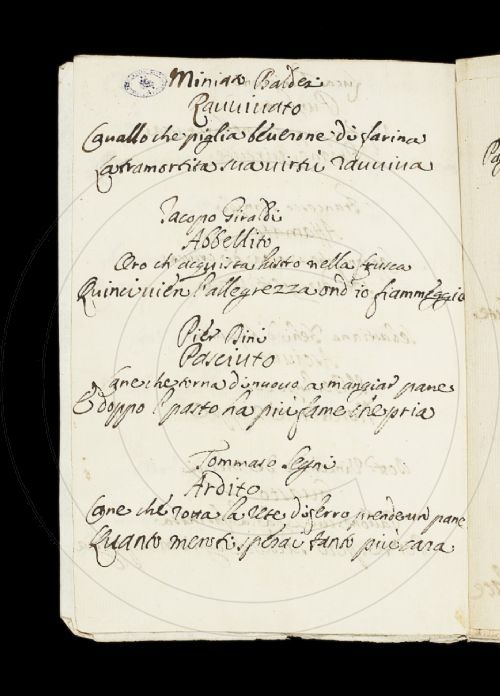 Miniato Baldesi
Ravvivato
Cavallo che piglia beverone di farina
La tramortita sua virtù ravviva
Jacopo Giraldi
Abbellito
Oro ch'acquista lustro nella
Quinci vien l'allegrezza ond'io fiammeggio
Pier Bini
Pasciuto
Cane che torna di nuovo a mangiar pane
E doppo l pasto ha più fame che pria
Tommaso Segni
Ardito
Cane che rotta la rete di ferro prende un pane
Quanto men sperai tanto più cara